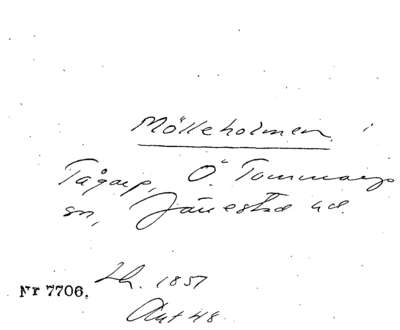 Mölleholmen i
Tågarp, Ö. Tommarps
sn, Järrestad hd.
1851
Nr 7706.
Akt 48